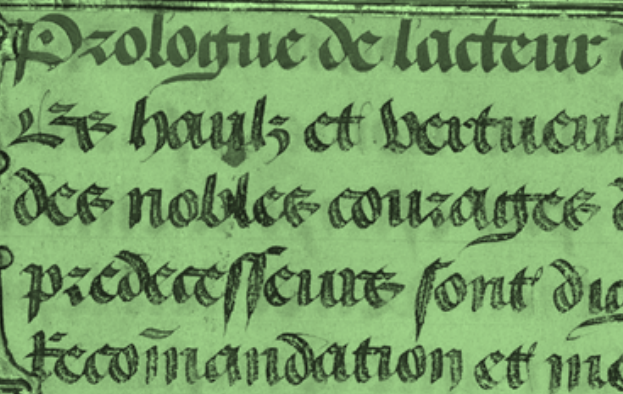 Prologue de lacteur
Les haulz et vertueul
des nobles courages d
predecesseurs sont dig
Recom̄andation et me